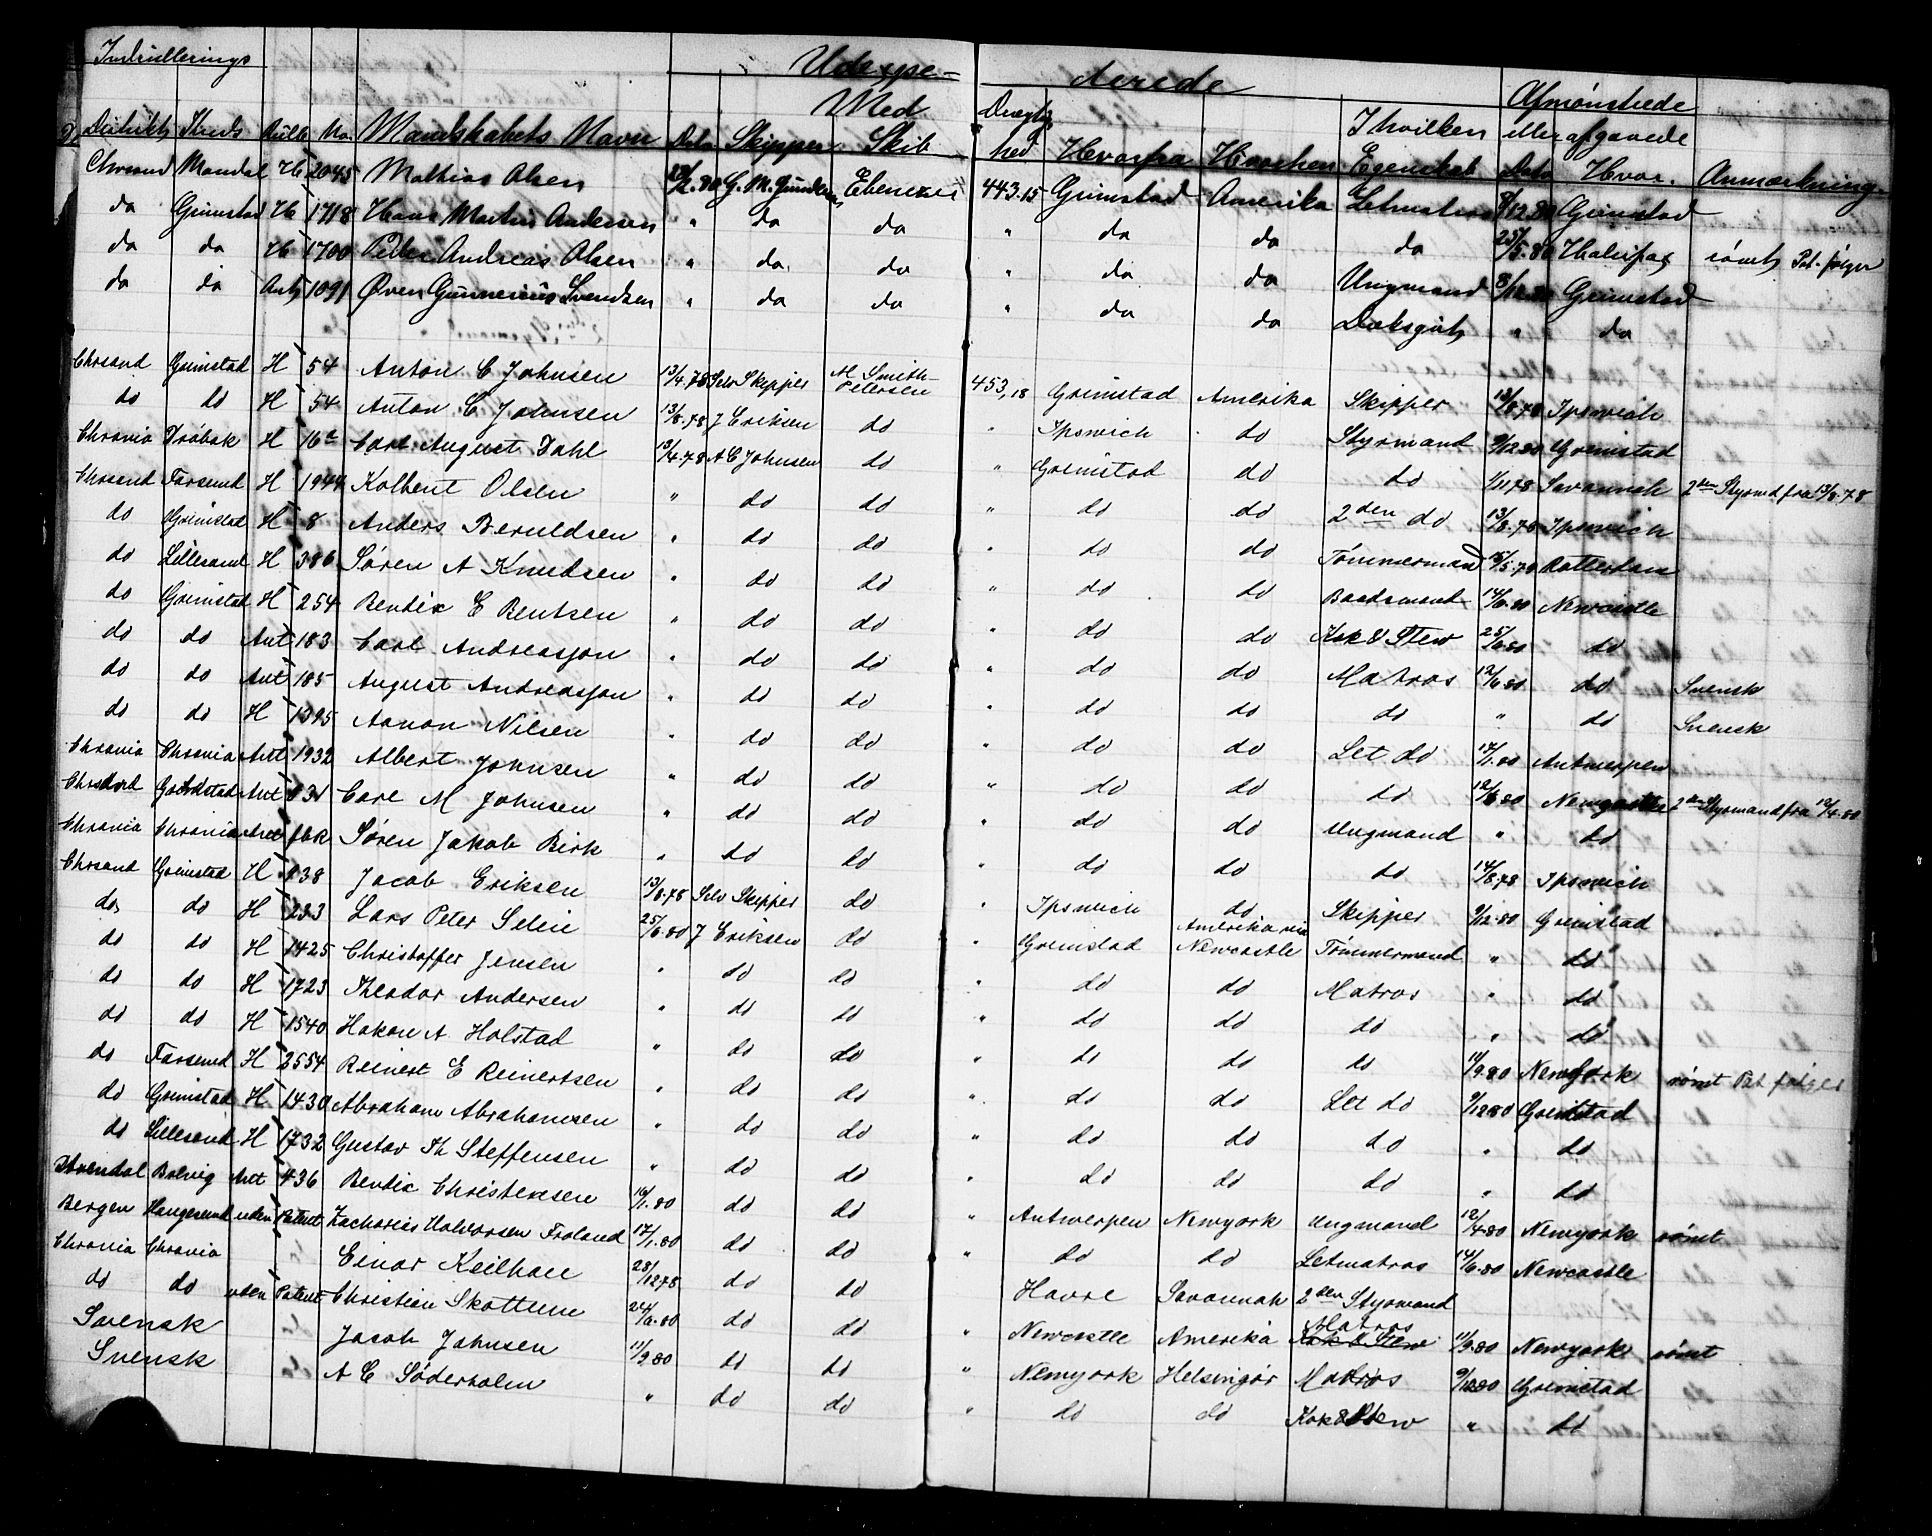 Indrullerings Udexpe= derede Afmønstrede
Med Drægtig I hvilken eller afgaaede
Distrikts Kreds Rulle No. Mandskabets Navn Dato Skipper Skib hed Hvorfra Hvorhen Egenskab Dato Hvor. Anmærkning.
Chrsand Mandal H 2045 Mathias Olsen G. M. Gundersen Ebenezer 443.15 Grimstad Amerika Letmatros 8/12.80 Grimstad
do Grimstad H 1718 Hans Martin Andersen " do do " do do do 25/5.80 Halifax rømt, Pat. følger
do do H 1700 Peder Andreas Olsen " do do " do do Ungmand 8/12.80 Grimstad
do do Ant 1091 Øven Gunnerius Svendsen " do do " do do Dæksgut " do
Chrsand Grimstad H 54 Anton C Johnsen 13/4.78 Selv Skipper M Smith-Petersen 453,18 Grimstad Amerika Skipper 13/8.78 Ipswich
do do H 54 Anton C Johnsen 13/8.78 J Eriksen do " Ipswich do Styrmand 9/12 80 Grimstad
Chrania Drøbak H 16 Carl August Dahl 13/4.78 A C Johnsen do " Grimstad do do 1/11 78 Savannah 2den Styrmd fra 13/8.78
Chrsand Farsund H 1944 Kolbent Olsen " do do " do do 2den do 13/8.78 Ipswich
do Grimstad H 8 Anders Beruldsen " do do " do do Tømmermand Rotterdam
do Lillesand H 386 Søren A Knudsen " do do " do do Baadsmand 14/6.80 Newcastle
do Grimstad H 254 Bentix E Bentsen " do do " do do Kok & Stew 25/6.80 do
do do Ant 183 Carl Andreasson " do do " do do Matros 12/6.80 do Svensk
do do Ant 185 August Andreasson " do do " do do do " do Svensk
do do H 1395 Aanon Nilsen " do do " do do Let do 17/1.80 Antwerpen
Chrania Chrania Ant 1932 Albert Johnsen " do do " do do do 12/6 80 Newcastle 2den Styrmand fra 12/4.80
Chrsand Grimstad Ant 831 Carl M Johnsen " do do " do do Ungmand " do
Chrania Chrania Ant fbk Søren Jakob Birk " do do " do do do 14/8.78 Ipswich
Chrsand Grimstad H 238 Jacob Eriksen 13/8.78 Selv Skipper do " Ipswich do Skipper 9/12.80 Grimstad
do do H 233 Lars Peter Selin 25/6.80 J Eriksen do " Grimstad Amerika via Newcastle Tømmermand " do
do do H 1425 Christoffer Jensen " do do " do do Matros " do
do do H 1723 Theodor Andersen " do do " do do do " do
do do H 1540 Hakon A. Holstad " do do " do do do 11/9.80 Newyork rømt Pat følger
do Farsund H 2554 Reinert E Reinertsen " do do " do do Let do 9/12 80 Grimstad
do Grimstad H 1430 Abraham Abrahamsen " do do " do do do " do
do Lillesand H 1732 Gustav Th Steffensen " do do " do do do " do
Arendal Bolvig Ant 436 Bentix Christensen 16/1.80 do do " Antwerpen Newyork Ungmand 12/4.80 Newyork rømt
Bergen Haugesund uden Patent Zacharias Halvorsen Froland 17/1.80 do do " do do Letmatros 14/6.80 Newcastle
Chrania Chrania Einar Keilhau 28/12 78 do do Havre Savannah 2den Styrmand
do do uden Patent Christian Skattum 24/6.80 do do " Newcastle Amerika Matros Kok & Stew 11/9.80 Newyork rømt
Svensk Jacob Johnsen 11/9.80 do do " Newyork Helsingør Matros 9/12 80 Grimstad
Svensk A C Søderholm " do do " do do Kok & Stew " do